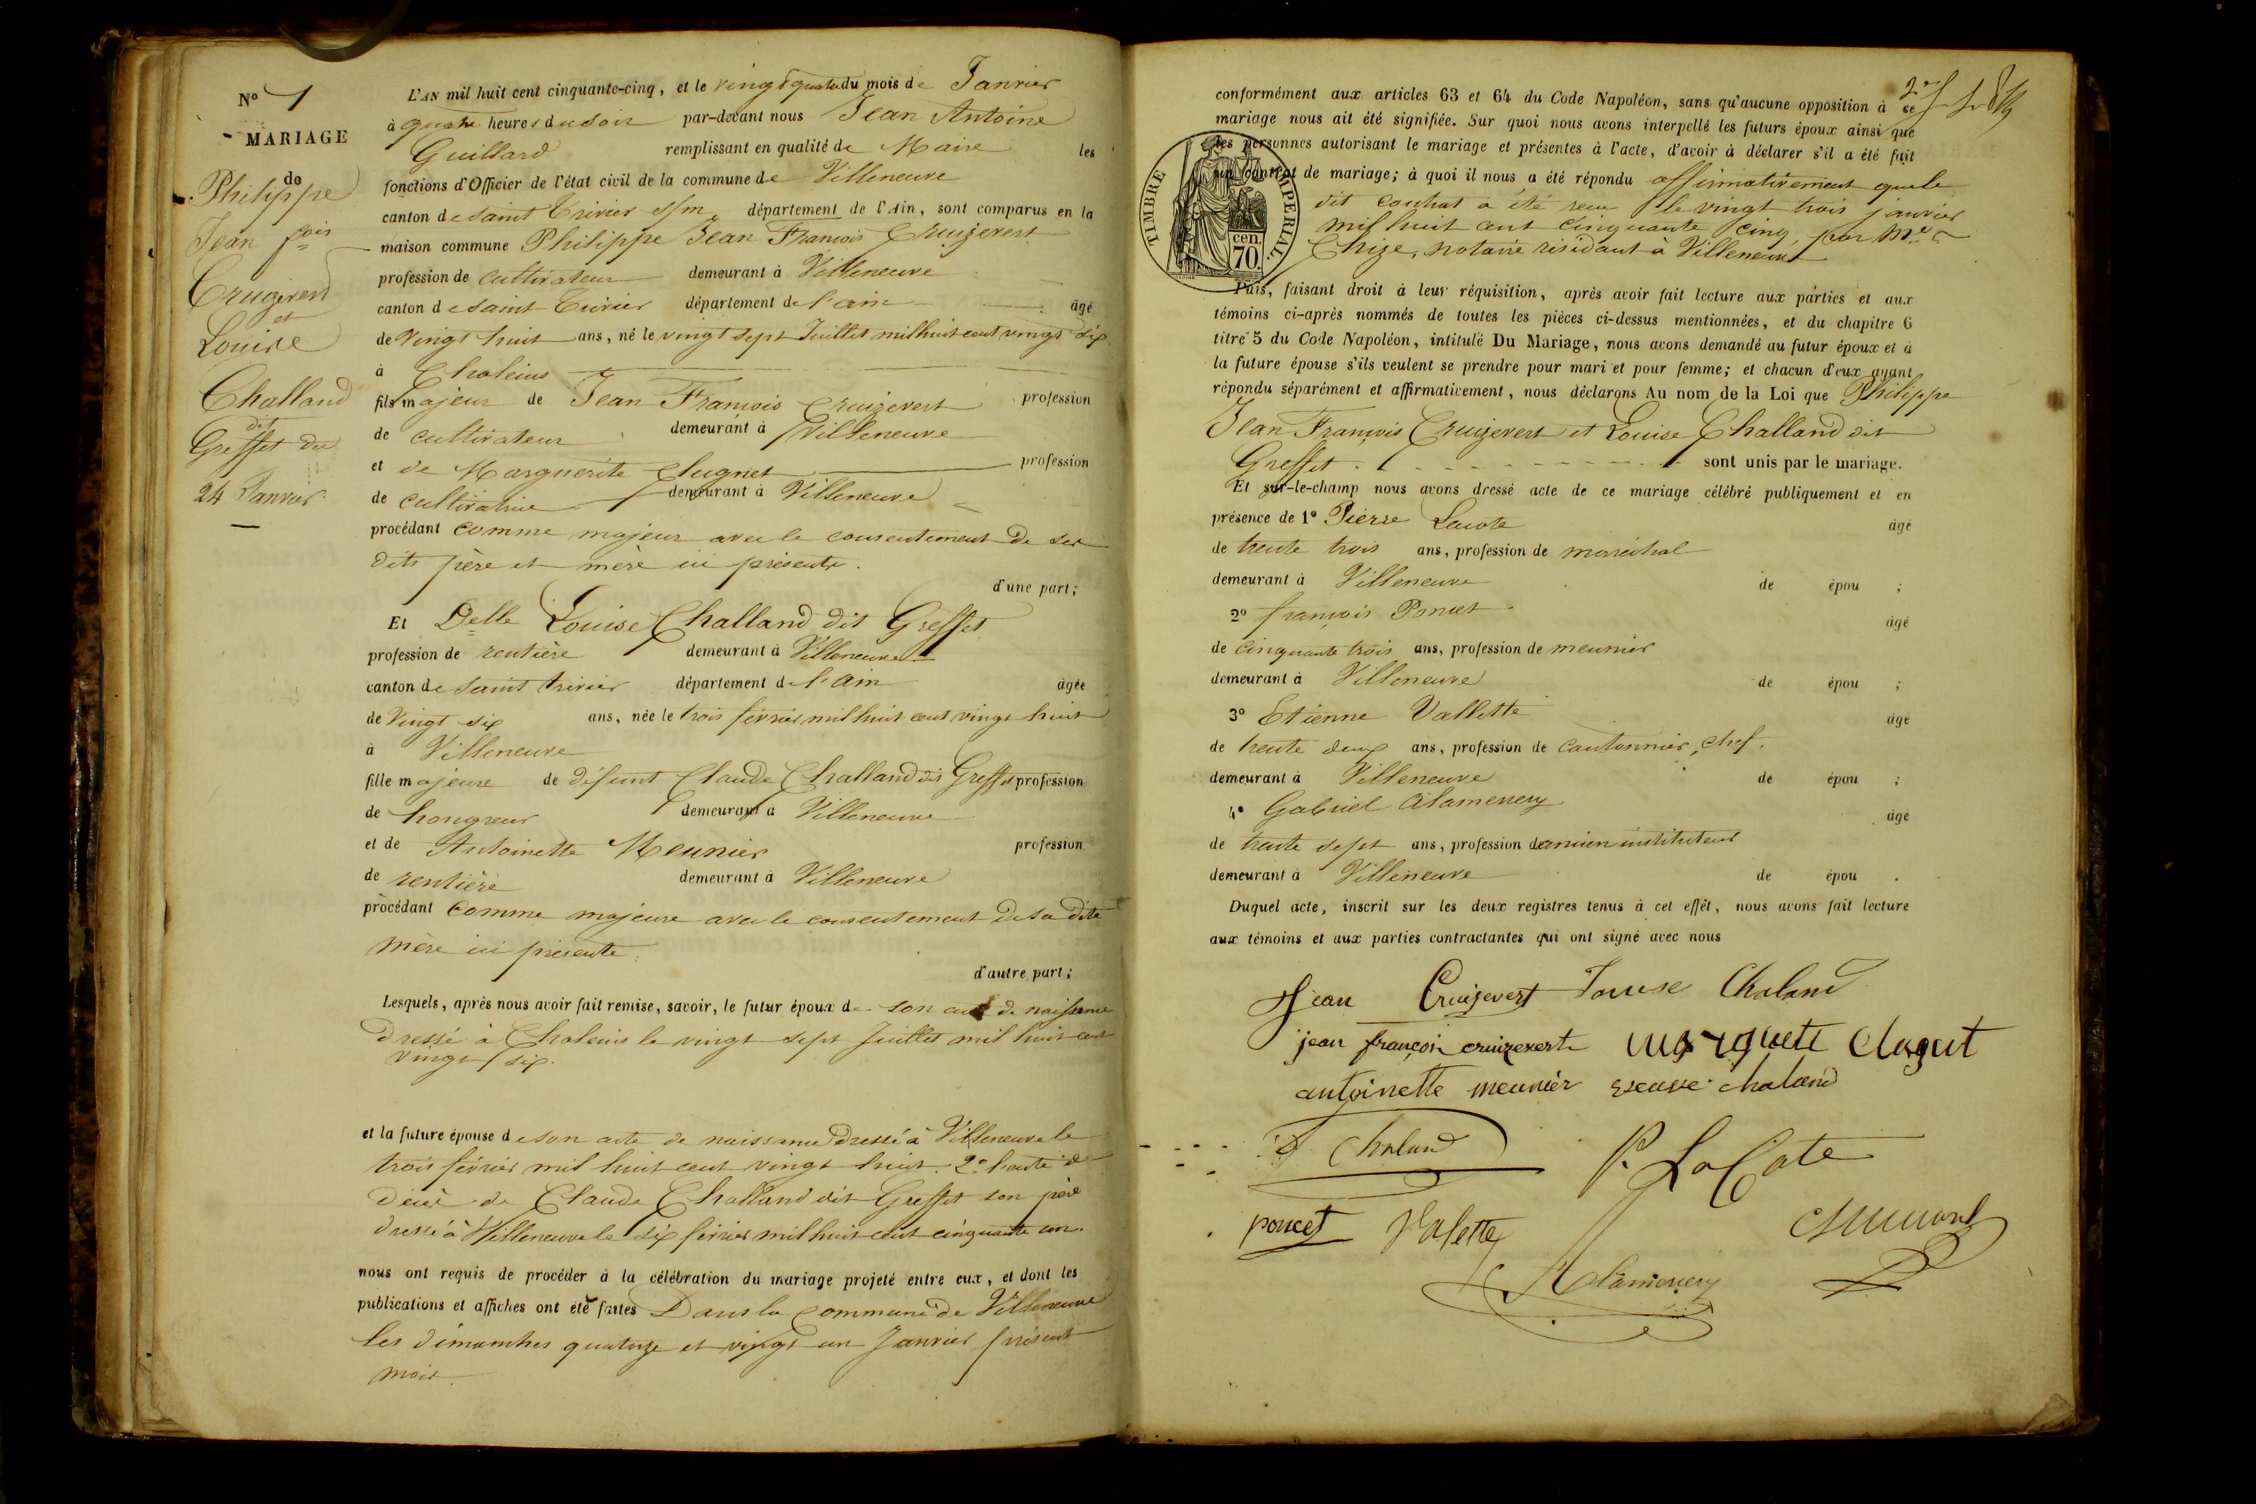 N° 1
MARIAGE
de
Philippe
Jean fois
Cruizevert
et
Louise
Challand
dit
Greffet du
24 Janvier.
L'AN mil huit cent cinquante-cinq, et le vingt quatre du mois de Janvier
à quatre heures du soir par-devant nous Jean Antoine
Guillard remplissant en qualité de Maire les
fonctions d'Officier de l'état civil de la commune de Villeneuve
canton de saint Trivier s/m département de l'Ain, sont comparus en la
maison commune Philippe Jean François Cruizevert
profession de cultivateur demeurant à Villeneuve
canton de saint Trivier département de l'ain âgé
de vingt huit ans, né le vingt sept Juillet mil huit cent vingt six
à Chaleins
fils majeur de Jean François Cruizevert profession
de cultivateur demeurant à Villeneuve
et de Marguerite Clugnet profession
de cultivatrice demeurant à Villeneuve
procédant comme majeur avec le consentement de ses
dits père et mère ici présents.
d'une part;
Et Delle Louise Challand dit Greffet
profession de rentière demeurant à Villeneuve
canton de saint trivier département de l'ain âgée
de vingt six ans, née le trois février mil huit cent vingt huit
à Villeneuve
fille majeure de défunt Claude Challand dit Greffet profession
de hongreur demeurant à Villeneuve
et de Antoinette Meunier profession
de rentière demeurant à Villeneuve
procédant comme majeure avec le consentement de sa dite
mère ici présente.
d'autre part;
Lesquels, après nous avoir fait remise, savoir, le futur époux de son acte de naissance
dressé à Chaleins le vingt sept Juillet mil huit cent
vingt six.
et la future épouse de son acte de naissance dressé à Villeneuve le
trois février mil huit cent vingt huit. 2°
décès de Claude Challand dit Greffet son père
dressé à Villeneuve le six février mil huit cent cinquante un.
nous ont requis de procéder à la célébration du mariage projeté entre eux, et dont les
publications et affiches ont été faites Dans la commune de Villeneuve
les dimanches quatorze et vingt un Janvier présent
mois.
conformément aux articles 63 et 64 du Code Napoléon, sans qu'aucune opposition à ce
mariage nous ait été signifiée. Sur quoi nous avons interpellé les futurs époux ainsi que
les personnes autorisant le mariage et présentes à l'acte, d'avoir à déclarer s'il a été fait
un contrat de mariage; à quoi il nous a été répondu affirmativement que le
dit contrat a été reçu le vingt trois janvier
mil huit cent cinquante cinq, par Me
Chize, notaire résidant à Villeneuve
TIMBRE IMPERIAL.
cen.
70.
Puis, faisant droit à leur réquisition, après avoir fait lecture aux parties et aux
témoins ci-après nommés de toutes les pièces ci-dessus mentionnées, et du chapitre 6
titre 5 du Code Napoléon, intitulé Du Mariage, nous avons demandé au futur époux et à
la future épouse s'ils veulent se prendre pour mari et pour femme; et chacun d'eux ayant
répondu séparément et affirmativement, nous déclarons Au nom de la Loi que Philippe
Jean François Cruizevert et Louise Challand dit
Greffet sont unis par le mariage.
Et sur-le-champ nous avons dressé acte de ce mariage célébré publiquement et en
présence de 1° Pierre Lacote âgé
de trente trois ans, profession de maréchal
demeurant à Villeneuve de épou ;
2° françois Poncet âgé
de cinquante trois ans, profession de meunier
demeurant à Villeneuve de épou ;
3° Etienne Vallette âgé
de trente deux ans, profession de cantonnier, chef.
demeurant à Villeneuve de épou ;
4° Gabriel Alamercery âgé
de trente sept ans, profession d'ancien instituteur
demeurant à Villeneuve de épou .
Duquel acte, inscrit sur les deux registres tenus à cet effet, nous avons fait lecture
aux témoins et aux parties contractantes qui ont signé avec nous
Jean Cruizevert Louise Chaland
jean françois cruizevert marguete Clugnt
antoinette meunier veuve chaland
Chaland P. LaCote
poncet Valette
Alamercery